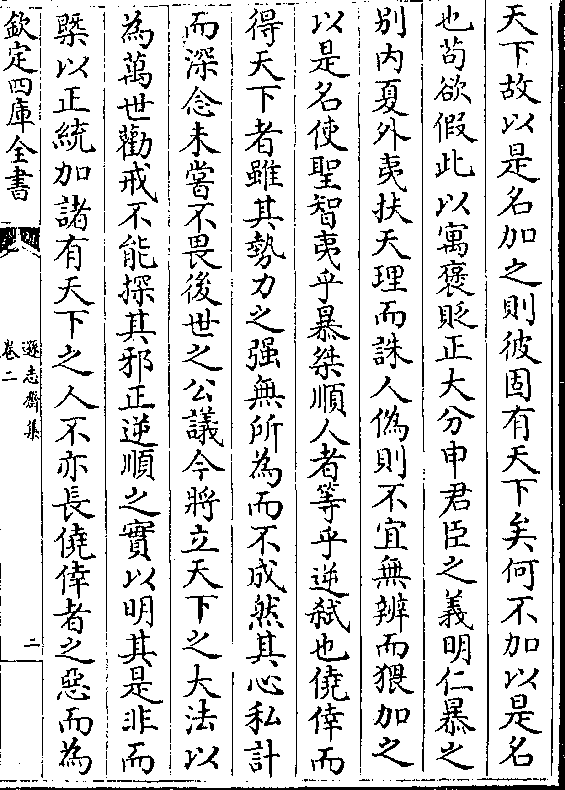 天下故以是名加之則彼固有天下矣何不加以是名
也茍欲假此以寓褒貶正大分申君臣之義明仁暴之
别内夏外夷扶天理而誅人偽則不宜無辨而猥加之
以是名使聖智夷乎暴桀順人者等乎逆弑也僥倖而
得天下者雖其勢力之强無所為而不成然其心私計
而深念未嘗不畏後世之公議今將立天下之大法以
為萬世勸戒不能探其邪正逆順之實以明其是非而
槩以正統加諸有天下之人不亦長僥倖者之惡而為
欽定四庫全書
遜志齋集
卷二
二